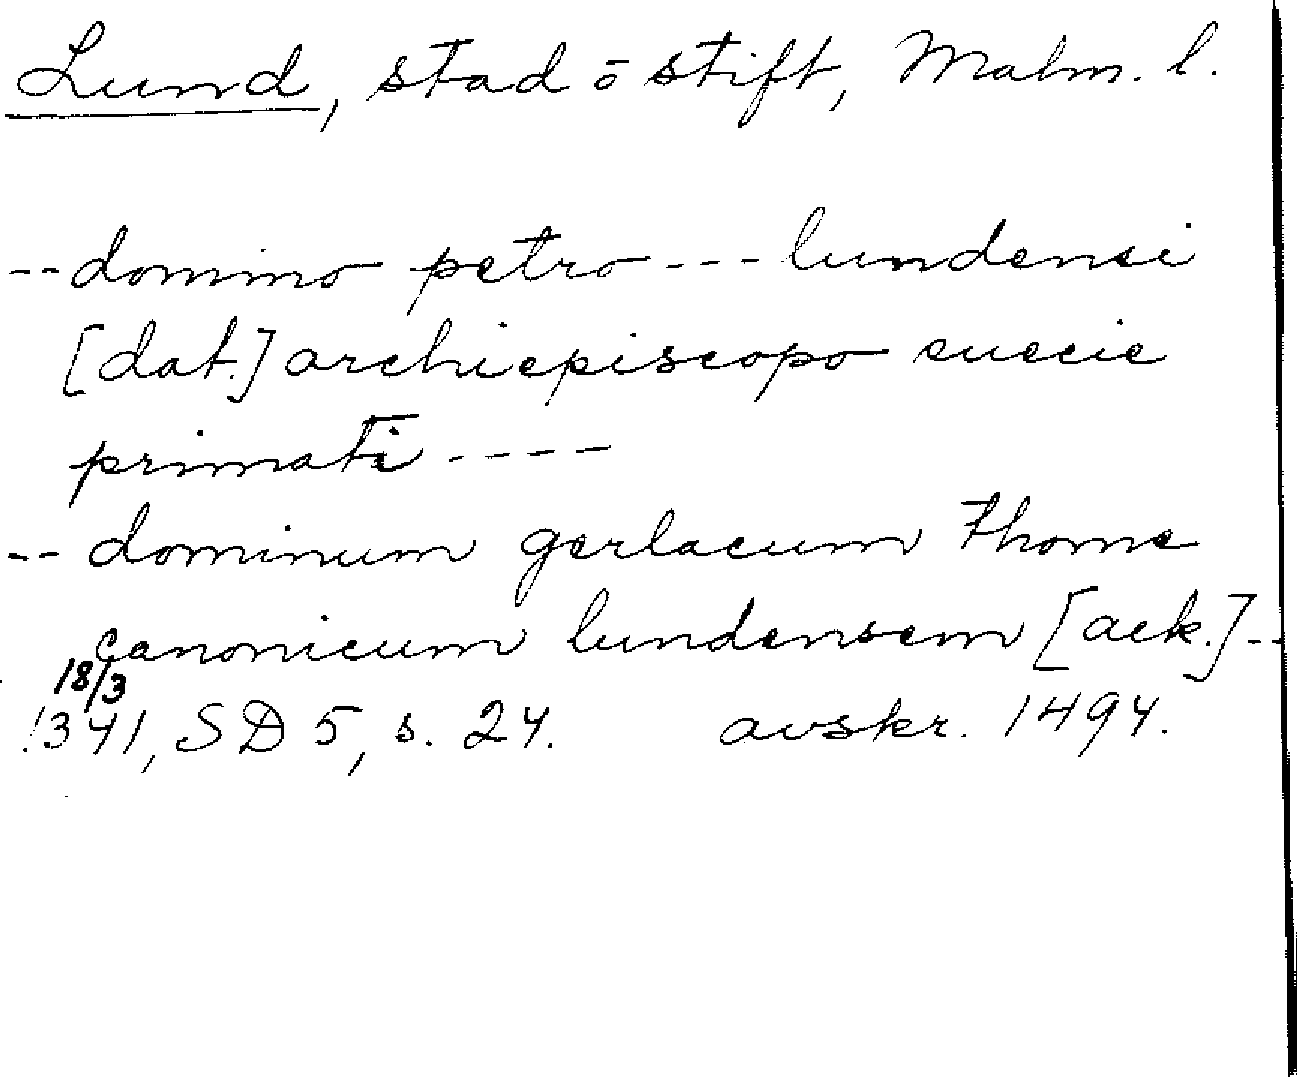 Lund, stad o stift, Malm. l.
-- domino petro --- lundensi
[dat.] archiepiscopo suecie
primati ----
-- dominum gerlacum Thome
canonicum lundensem [ack.] --
18/3
1341, SD 5, s. 24. avskr. 1494.